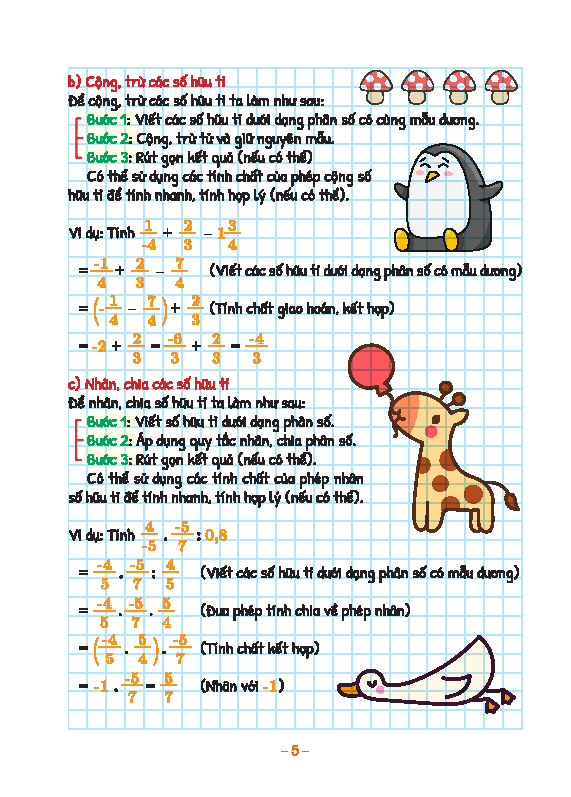 b) Cộng, trừ các số hữu tỉ
Để cộng, trừ các số hữu tỉ ta làm như sau:
Bước 1: Viết các số hữu tỉ dưới dạng phân số có cùng mẫu dương.
Bước 2: Cộng, trừ tử và giữ nguyên mẫu.
Bước 3: Rút gọn kết quả (nếu có thể)
Có thể sử dụng các tính chất của phép cộng số
hữu tỉ để tính nhanh, tính hợp lý (nếu có thể).
Ví dụ: Tính 1/-4 + 2/3 – 1 3/4
= -1/4 + 2/3 – 7/4 (Viết các số hữu tỉ dưới dạng phân số có mẫu dương)
= (-1/4 – 7/4) + 2/3 (Tính chất giao hoán, kết hợp)
= -2 + 2/3 = -6/3 + 2/3 = -4/3
c) Nhân, chia các số hữu tỉ
Để nhân, chia số hữu tỉ ta làm như sau:
Bước 1: Viết số hữu tỉ dưới dạng phân số.
Bước 2: Áp dụng quy tắc nhân, chia phân số.
Bước 3: Rút gọn kết quả (nếu có thể).
Có thể sử dụng các tính chất của phép nhân
số hữu tỉ để tính nhanh, tính hợp lý (nếu có thể).
Ví dụ: Tính 4/-5 . -5/7 : 0,8
= -4/5 . -5/7 : 4/5 (Viết các số hữu tỉ dưới dạng phân số có mẫu dương)
= -4/5 . -5/7 . 5/4 (Đưa phép tính chia về phép nhân)
= (-4/5 . 5/4) . -5/7 (Tính chất kết hợp)
= -1 . -5/7 = 5/7 (Nhân với -1)
– 5 –